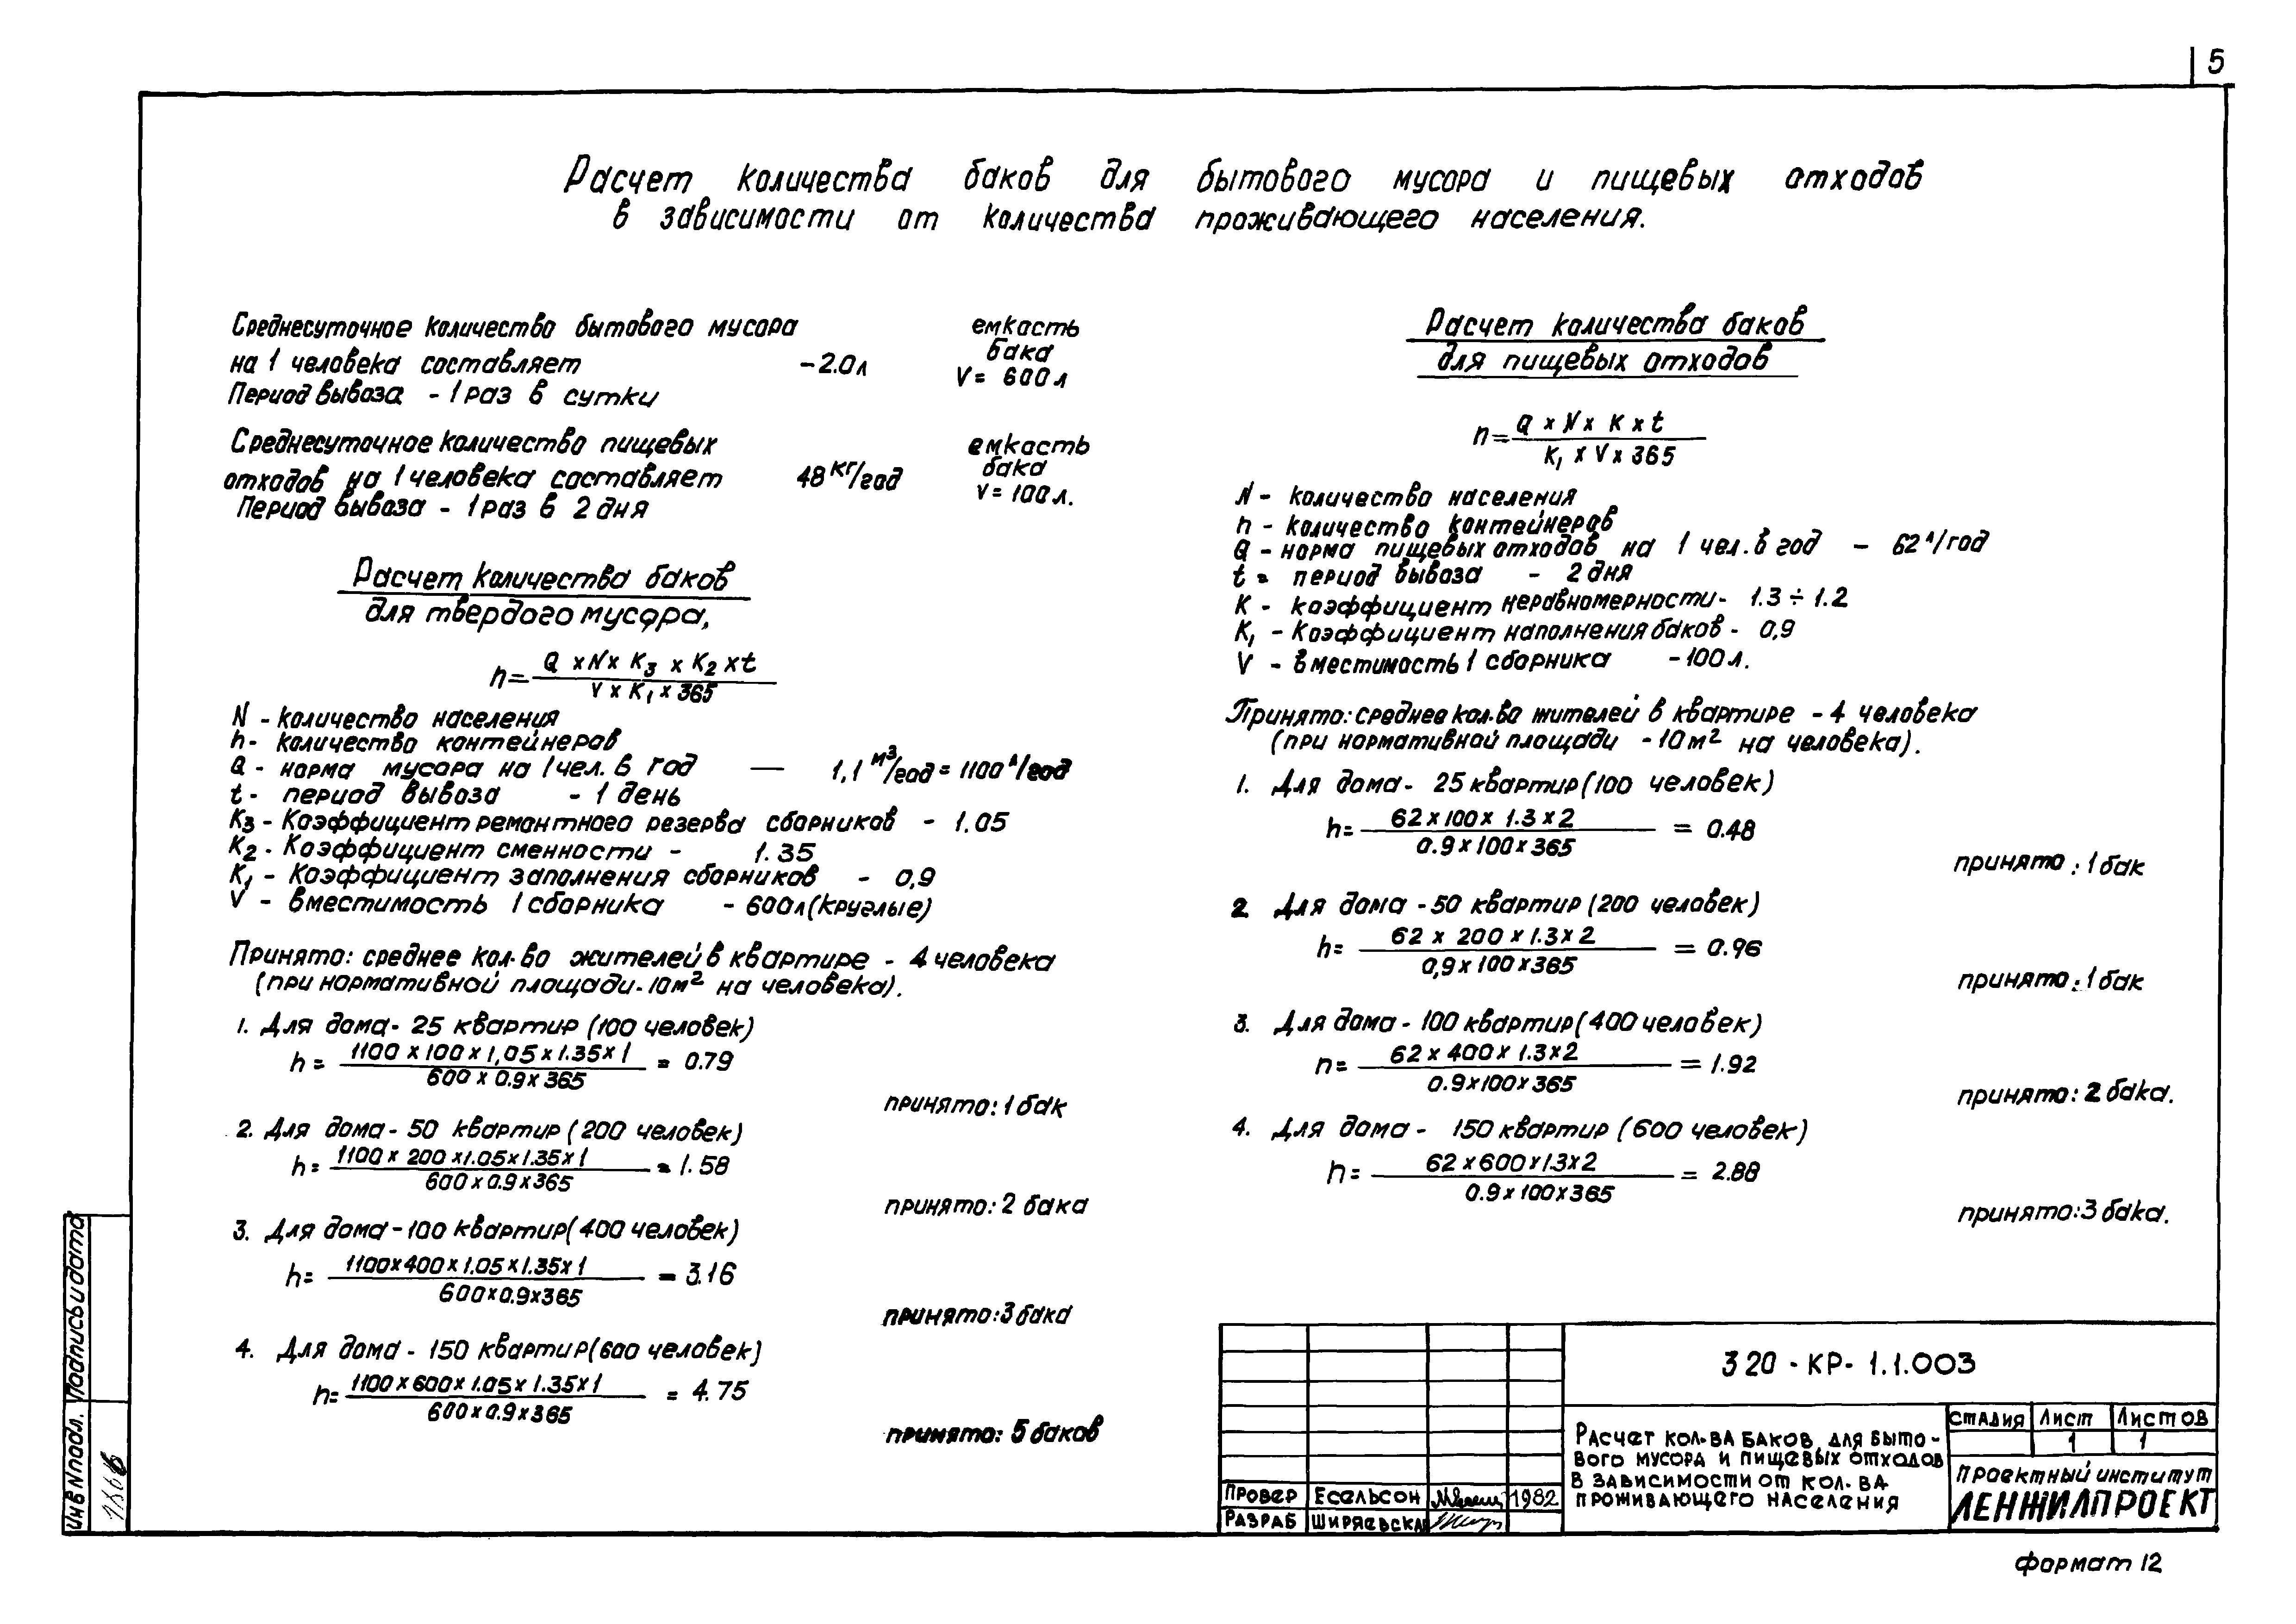 5
Расчет количества баков для бытового мусора и пищевых отходов
в зависимости от количества проживающего населения.
Среднесуточное количество бытового мусора
на 1 человека составляет -2.0л
Период вывоза - 1 раз в сутки
емкасть
бака
V= 600л
Среднесуточное количество пищевых
отходов на 1 человека составляет 48 кг/год
Период вывоза - 1 раз в 2 дня
емкасть
бака
V= 100л.
Расчет количества баков
для твердого мусора,
n= Q x N x K3 x K2 x t
V x K1 x 365
N - количество населения
n - количество контейнеров
Q - норма мусора на 1 чел. в год — 1,1 м3/год = 1100 л/год
t - период вывоза - 1 день
K3 - Коэффициент ремонтного резерва сборников - 1.05
K2 - Коэффициент сменности - 1.35
K1 - Коэффициент заполнения сборников - 0,9
V - вместимость 1 сборника - 600л (круглые)
Принято: среднее кол-во жителей в квартире - 4 человека
(при нормативной площади - 10м2 на человека).
1. Для дома - 25 квартир (100 человек)
n = 1100 x 100 x 1,05 x 1.35 x 1 = 0.79
600 x 0.9 x 365
принято: 1 бак
2. Для дома - 50 квартир (200 человек)
n = 1100 x 200 x 1.05 x 1.35 x 1 = 1.58
600 x 0.9 x 365
принято: 2 бака
3. Для дома - 100 квартир (400 человек)
n = 1100 x 400 x 1.05 x 1.35 x 1 = 3.16
600 x 0.9 x 365
принято: 3 бака
4. Для дома - 150 квартир (600 человек)
n = 1100 x 600 x 1.05 x 1.35 x 1 = 4.75
600 x 0.9 x 365
принято: 5 баков
Расчет количества баков
для пищевых отходов
n= Q x N x K x t
K1 x V x 365
N - количество населения
n - количество контейнеров
Q - норма пищевых отходов на 1 чел. в год - 62 л/год
t = период вывоза - 2 дня
K - коэффициент неравномерности - 1.3 ÷ 1.2
K1 - Коэффициент наполнения баков - 0,9
V - вместимость 1 сборника - 100 л.
Принято: среднее кол-во жителей в квартире - 4 человека
(при нормативной площади - 10м2 на человека).
1. Для дома - 25 квартир (100 человек)
n= 62 x 100 x 1.3 x 2 = 0.48
0.9 x 100 x 365
принято: 1 бак
2. Для дома - 50 квартир (200 человек)
n= 62 x 200 x 1.3 x 2 = 0.96
0,9 x 100 x 365
принято: 1 бак
3. Для дома - 100 квартир (400 человек)
n= 62 x 400 x 1.3 x 2 = 1.92
0.9 x 100 x 365
принято: 2 бака.
4. Для дома - 150 квартир (600 человек)
n= 62 x 600 x 1.3 x 2 = 2.88
0.9 x 100 x 365
принято: 3 бака.
320 - КР - 1.1.003
Расчет кол-ва баков для быто-
вого мусора и пищевых отходов
в зависимости от кол-ва
проживающего населения
Стадия Лист Листов
1 1
Проектный институт
ЛЕНЖИЛПРОЕКТ
Провер Есельсон 1982
Разраб Ширяевская
Инв N подл. Подпись и дата
Формат 12